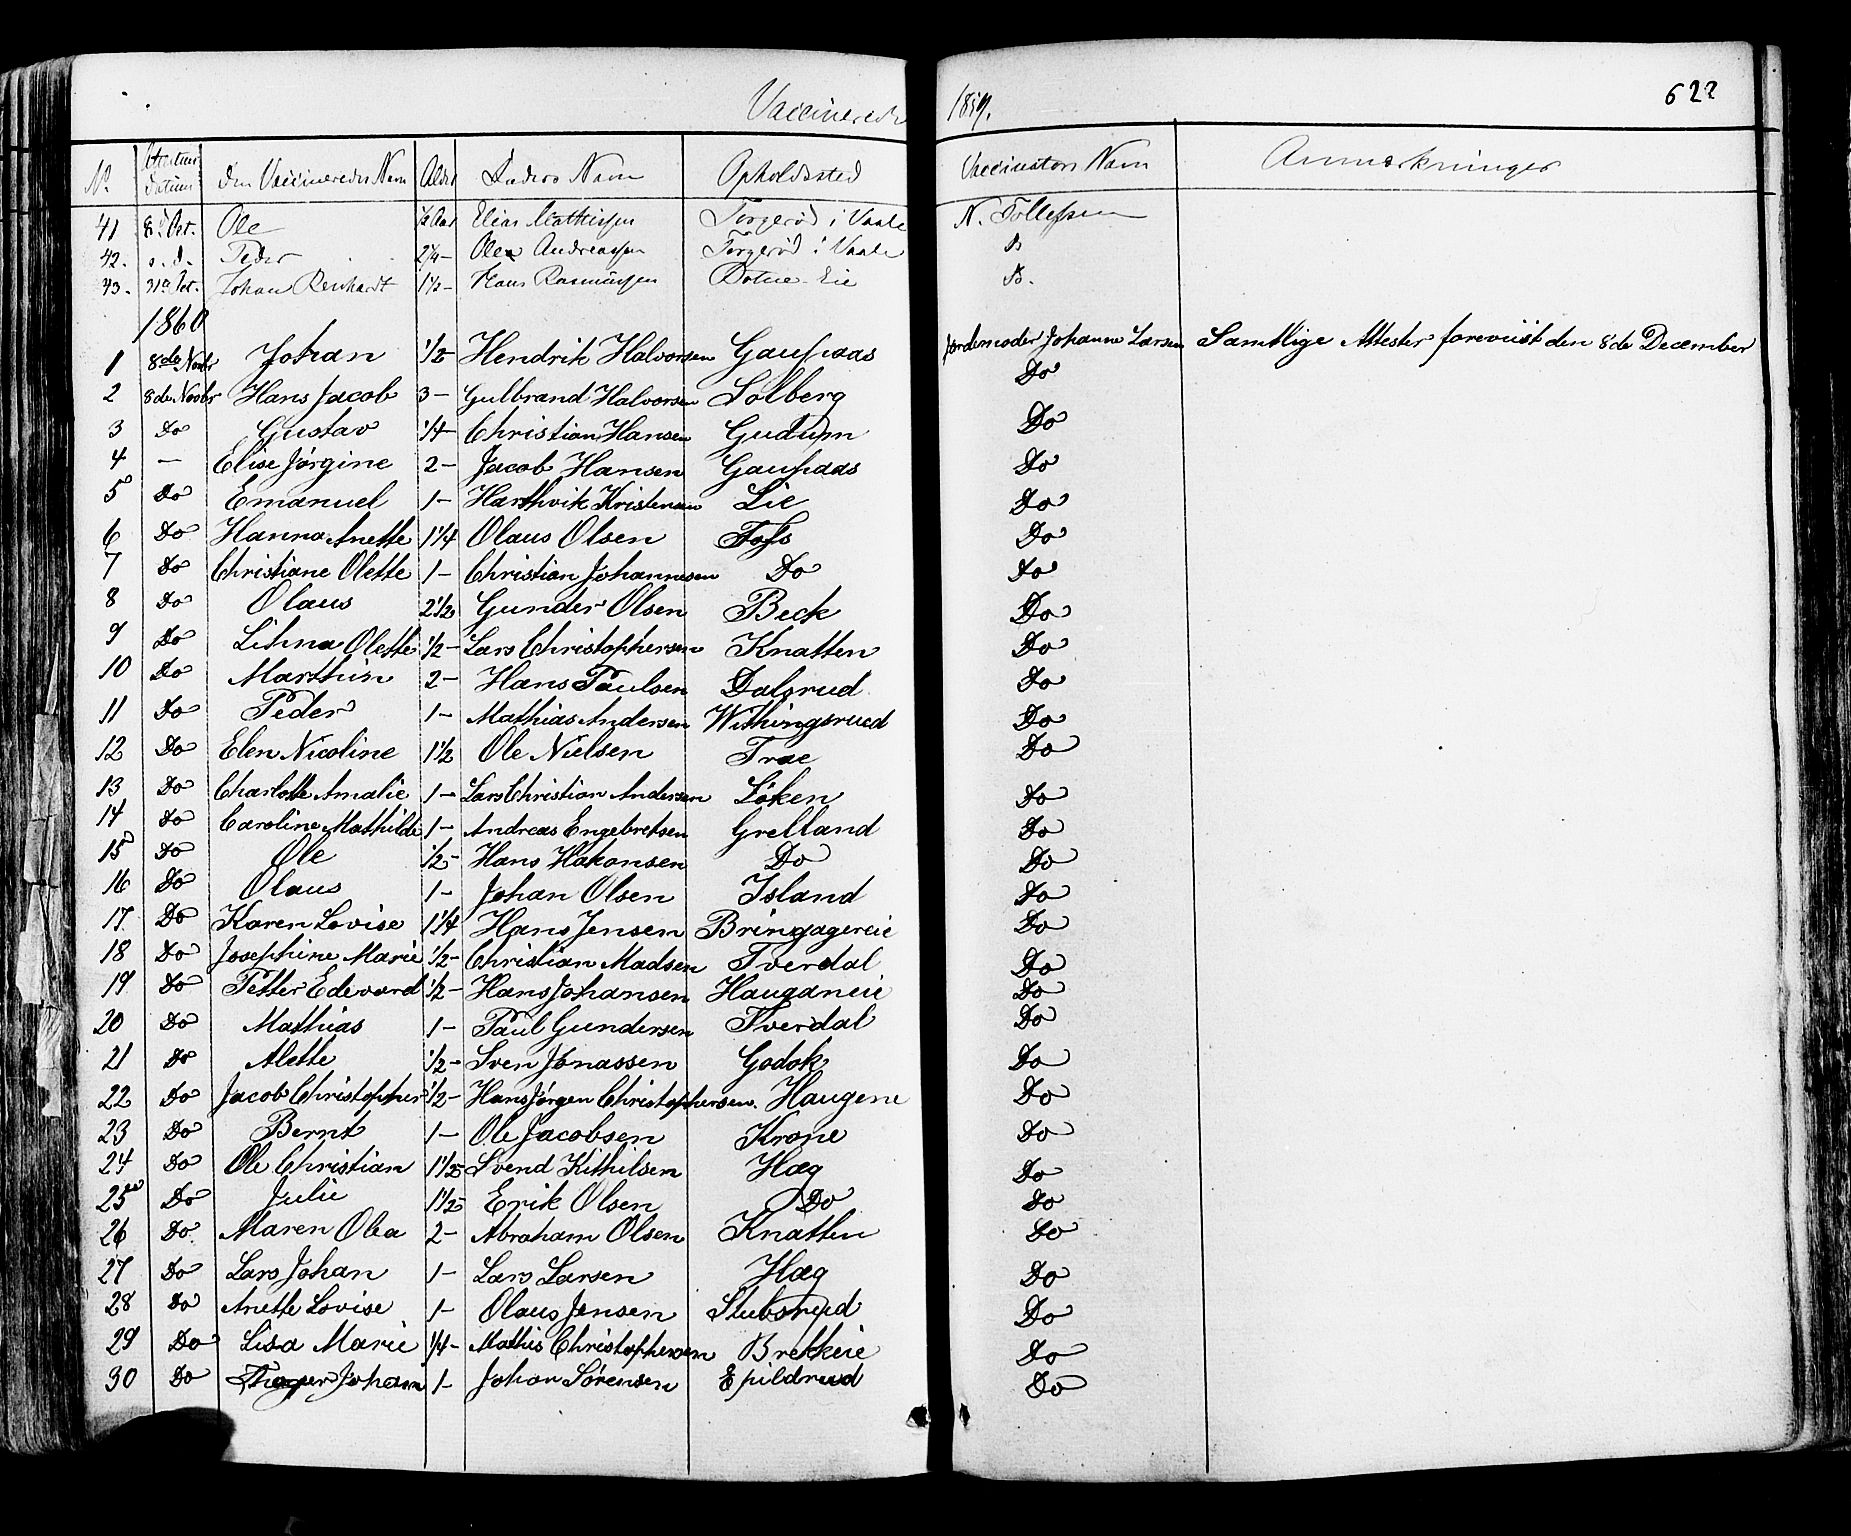 Vaccinerede 1859. 622
No. Attestens Datum Den Vaccineredes Navn Alder Faders Navn Opholdssted Vaccinators Navn Anmærkninger
41 8de Oct. Ole 1/2 Aar Elias Mathissen Torgerød i Vaale N. Tollefsen
42. s. d. Peder 2 1/4 - Ole Andreassen Torgerød i Vaale D
43. 31te Oct. Johan Reinhardt 1 1/2 - Hans Rasmussen Botne Eie D.
1860
1 8de Novbr Johan 1/2 - Hendrik Halvorsen Gaupaas Jordemoder Johanne Larsen Samtlige Attester foreviist den 8de December
2 8de Novbr Hans Jacob 3 - Gulbrand Halvorsen Solberg Do
3 Do Gustav 1/4 - Christian Hansen Gudum Do
4 — Elise Jørgine 2 - Jacob Hansen Gaupaas Do
5 Do Emanuel 1 - Harthvik Kristensen Lie Do
6 Do Hanna Anette 1 1/4 Olaus Olsen Fofs Do
7 Do Christiane Olette 1 - Christian Johannesen Do Do
8 Do Olaus 2 1/2 Gunder Olsen Beck Do
9 Do Olette 1/2 - Lars Christophersen Knatten Do
10 Do Marthin 2 - Hans Paulsen Dalsrud Do
11 Do Peder 1 - Mathias Andersen Withingsrud Do
12 Do Elen Nicoline 1 1/2 Ole Nielsen Trae Do
13 Do Charlotte Amalie 1 - Lars Christian Andersen Løken Do
14 Do Caroline Mathilde 1 - Andreas Engebretsen Grelland Do
15 Do Ole 1/2 - Hans Hakansen Do Do
16 Do Olaus 1 - Johan Olsen Island Do
17. Do Karen Lovise 1 1/4 Hans Jensen Bringagereie Do
18 Do Josephine Marie 1/2 - Christian Madsen Tverdal Do
19 Do Petter Edevard 1/2 - Hans Johansen Hauganeie Do
20 Do Mathias 1 - Paul Gundersen Tverdal Do
21 Do Alette 1/2 - Sven Jonassen Godok Do
22 Do Jacob Christopher 1/2 - Hans Jørgen Christophersen. Haugene Do
23 Do Bernt 1 - Ole Jacobsen Krone Do
24 Do Ole Christian 1 1/2 Svend Kithilsen Hæg Do
25 Do Julie 1 1/2 Erik Olsen Do Do
26 Do Maren Olea 2 - Abraham Olsen Knatten Do
27 Do Lars Johan 1 - Lars Larsen Hæg Do
28 Do Anette Lovise 1 - Olaus Jensen Stubsrud Do
29 Do Lisa Marie 1/4 - Mathis Christophersen Brekkeie Do
30 Do Johan 1 - Johan Sørensen Epildrud Do